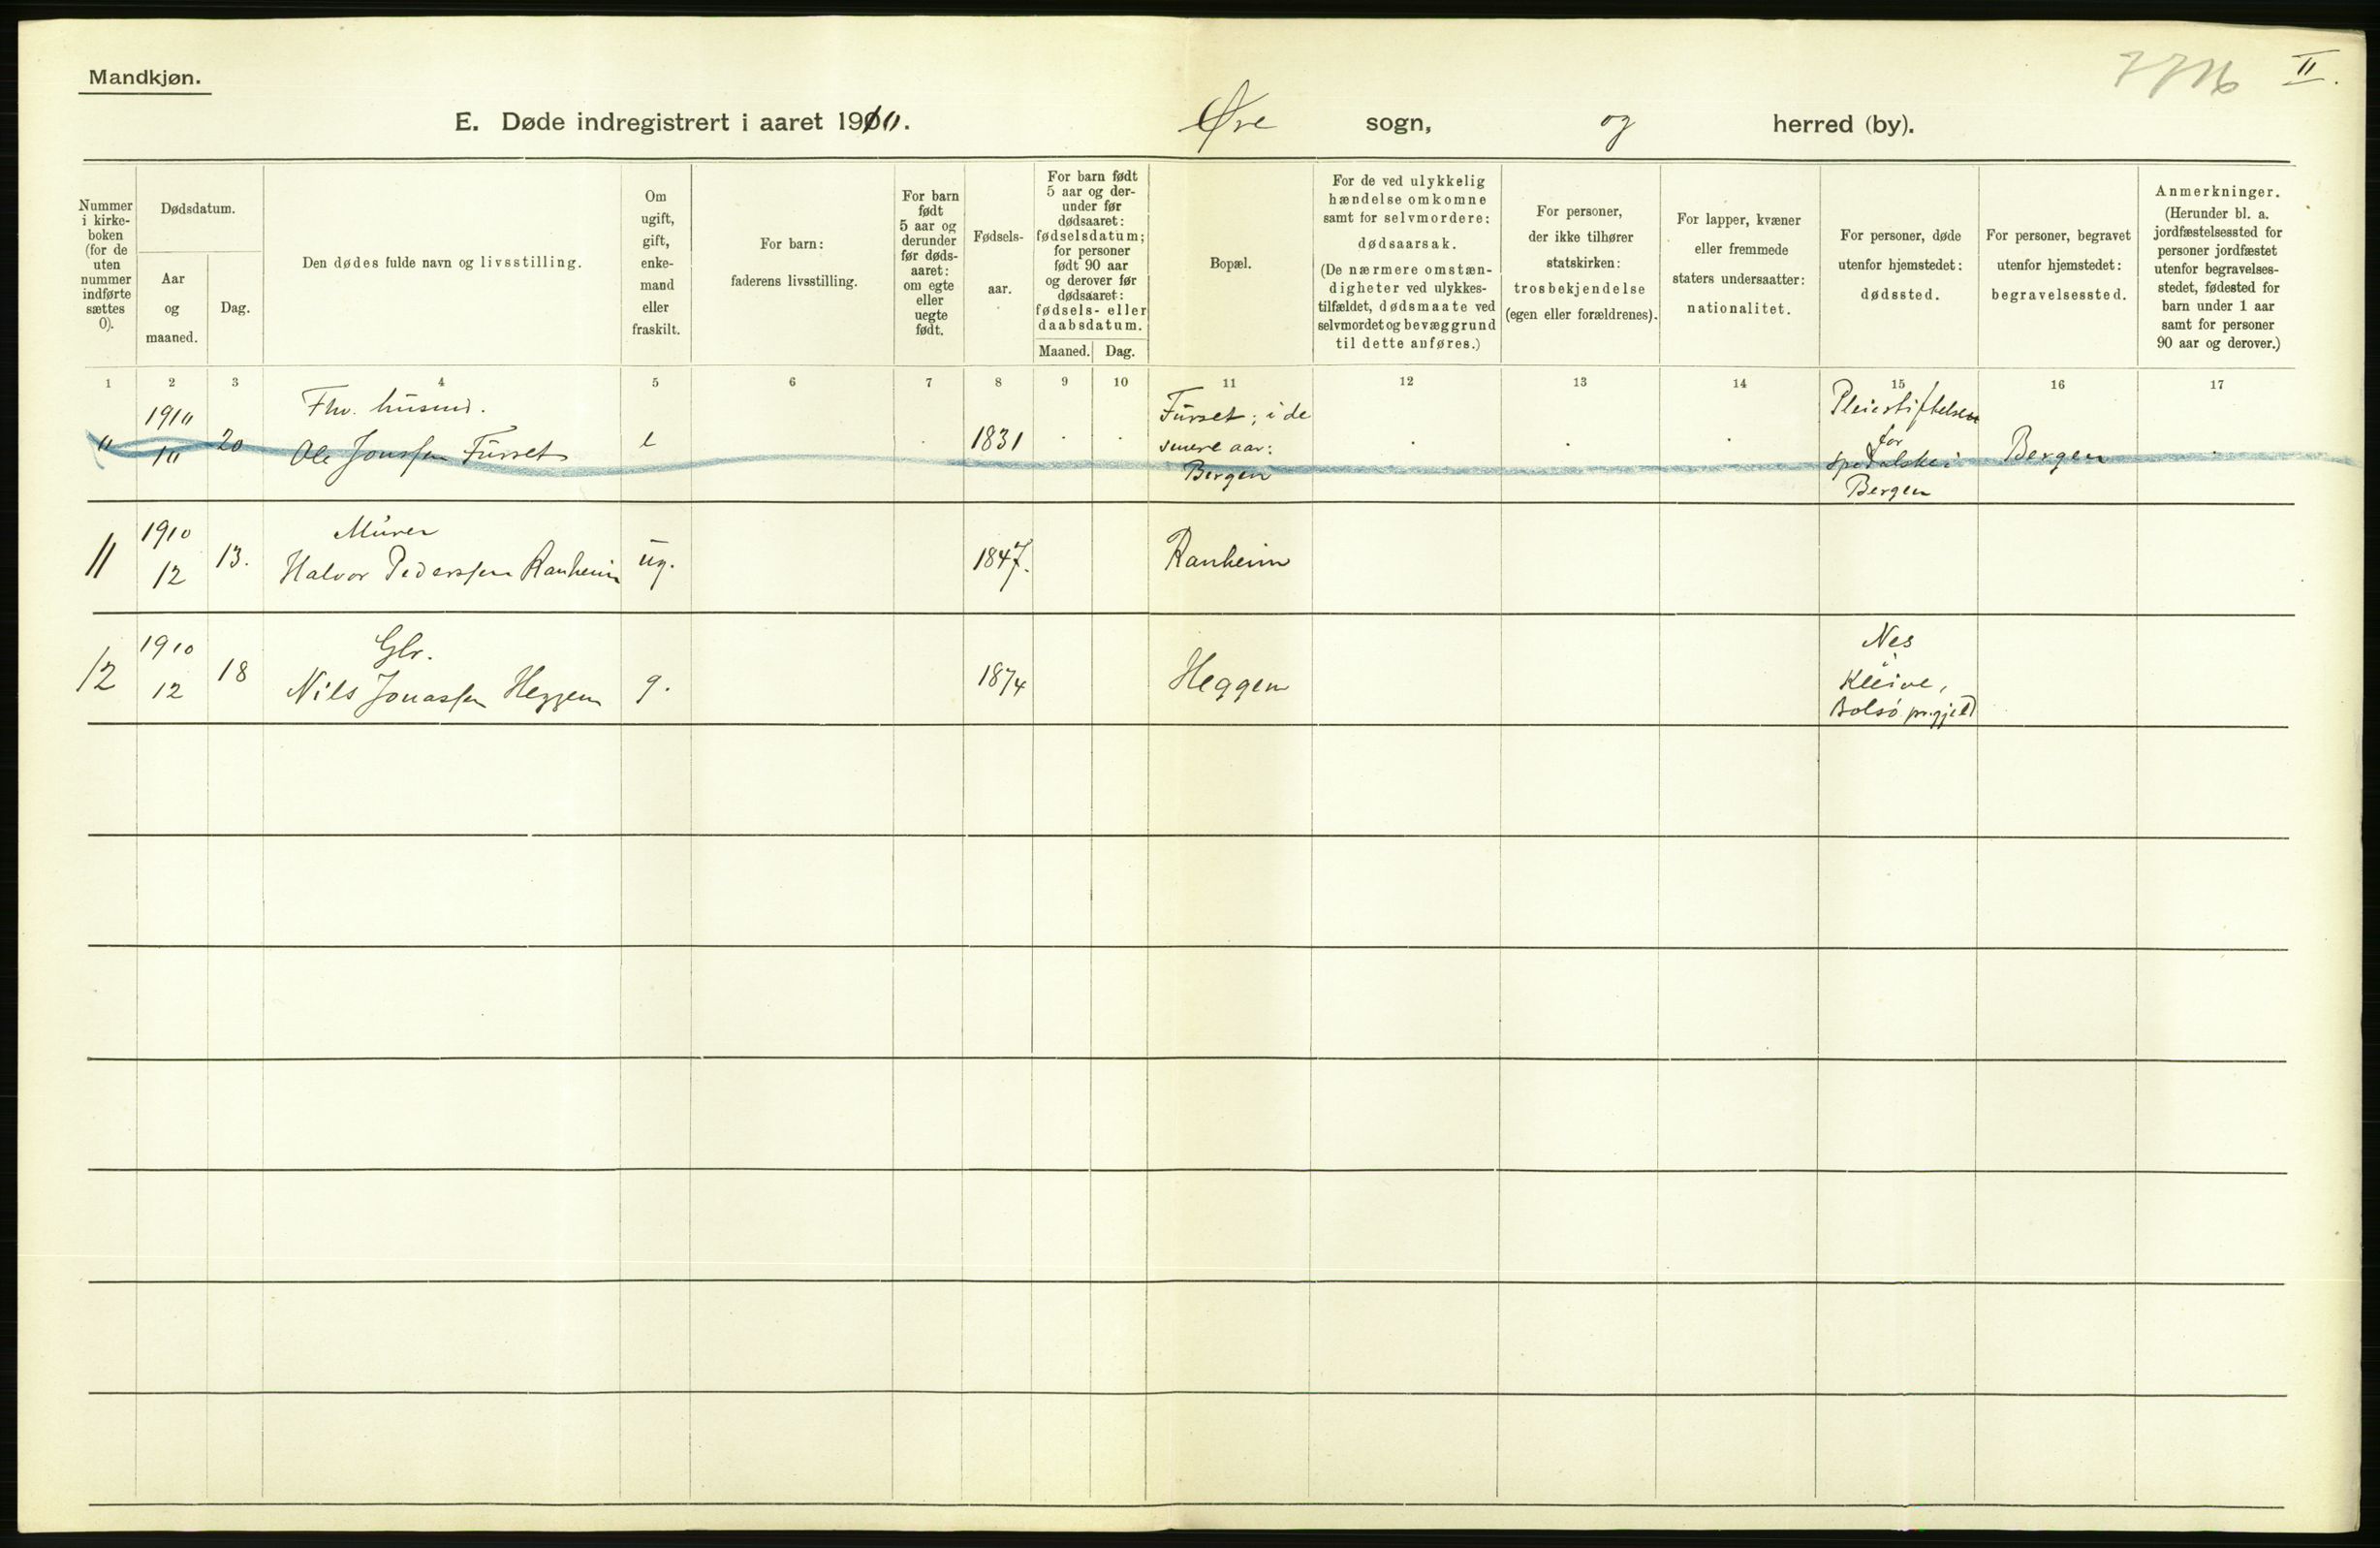 Mandkjøn.
II.
E. Døde indregistrert i aaret 1910.
Øre sogn, og herred (by).
Nummer
i kirke-
boken
(for de
uten
nummer
indførte
sættes
0).
Dødsdatum.
Aar
og
maaned.
Dag.
Den dødes fulde navn og livsstilling.
Om
ugift,
gift,
enke-
mand
eller
fraskilt.
For barn:
faderens livsstilling.
For barn
født
5 aar og
derunder
før døds-
aaret:
om egte
eller
uegte
født.
Fødsels-
aar.
For barn født
5 aar og der-
under før
dødsaaret:
fødselsdatum;
for personer
født 90 aar
og derover før
dødsaaret:
fødsels- eller
daabsdatum.
Maaned.
Dag.
Bopæl.
For de ved ulykkelig
hændelse omkomne
samt for selvmordere:
dødsaarsak.
(De nærmere omstæn-
digheter ved ulykkes-
tilfældet, dødsmaate ved
selvmordet og bevæggrund
til dette anføres.)
For personer,
der ikke tilhører
statskirken:
trosbekjendelse
(egen eller forældrenes).
For lapper, kvæner
eller fremmede
staters undersaatter:
nationalitet.
For personer, døde
utenfor hjemstedet:
dødssted.
For personer, begravet
utenfor hjemstedet:
begravelsessted.
Anmerkninger.
(Herunder bl. a.
jordfæstelsessted for
personer jordfæstet
utenfor begravelses-
stedet, fødested for
barn under 1 aar
samt for personer
90 aar og derover.)
1 2 3 4 5 6 7 8 9 10 11 12 13 14 15 16 17
"
1910
10
20
Fhv. husmd.
Ole Jonssen Furset
e
1831
Furset; i de
senere aar:
Bergen
Pleiestiftelsen
for
spedalske i
Bergen
Bergen
11
1910
12
13.
Murer
Halvor Pederssen Ranheim
ug.
1847.
Ranheim
12
1910
12
18
Gbr.
Nils Jonassen Heggem
g.
1874
Heggem
Nes
i
Kleive,
Bolsø pr.gjeld